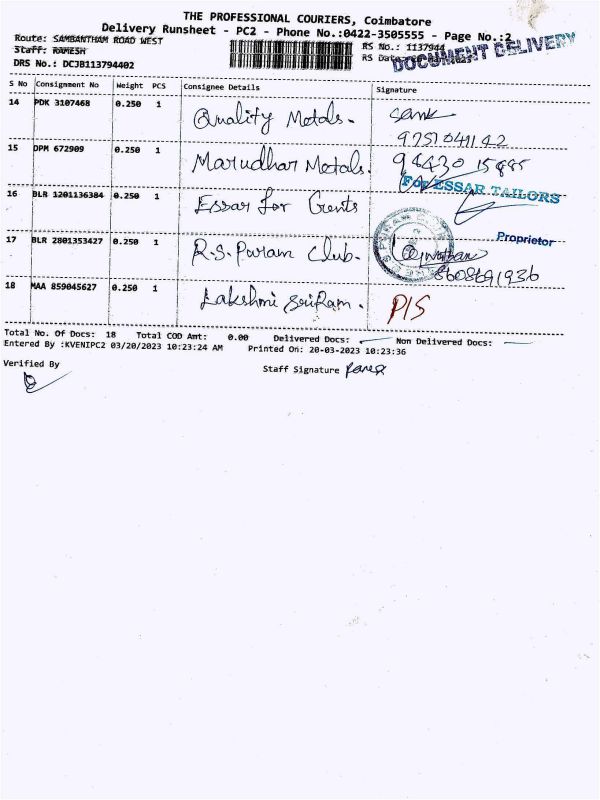 THE PROFESSIONAL COURIERS, Coimbatore
Delivery Runsheet - PC2 - Phone No.:0422-3505555 - Page No.:2
Route: SAMBANTHAM ROAD WEST
RS No.: 1137944
DOCUMENT DELIVERY
Staff: RAMESH
RS Date
DRS No.: DCJB113794402
S No Consignment No Weight PCS Consignee Details Signature
14 PDK 3107468 0.250 1 Quality Metals.
15 DPM 672909 0.250 1 Marudhar Metals. 94430 15885
For ESSAR TAILORS
16 BLR 1201136384 0.250 1 Essar for Gents
Proprietor
17 BLR 2801353427 0.250 1 R.S. Puram Club.
8608691936
18 MAA 859045627 0.250 1 Lakshmi SriRam. P/S
Total No. Of Docs: 18 Total COD Amt: 0.00 Delivered Docs: Non Delivered Docs:
Entered By :KVENIPC2 03/20/2023 10:23:24 AM Printed On: 20-03-2023 10:23:36
Verified By
Staff Signature